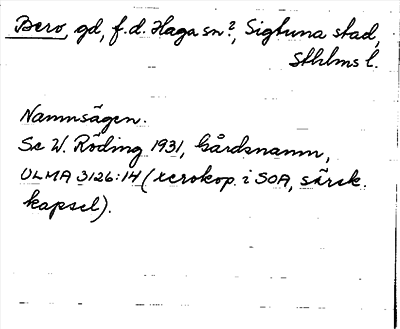 Bero, gd, f.d. Haga sn?, Sigtuna stad,
Sthlms l.
Namnsägen.
Se W. Röding 1931, Gårdsnamn,
ULMA 3126:14 (xerokop. i SOA, särsk.
kapsel).